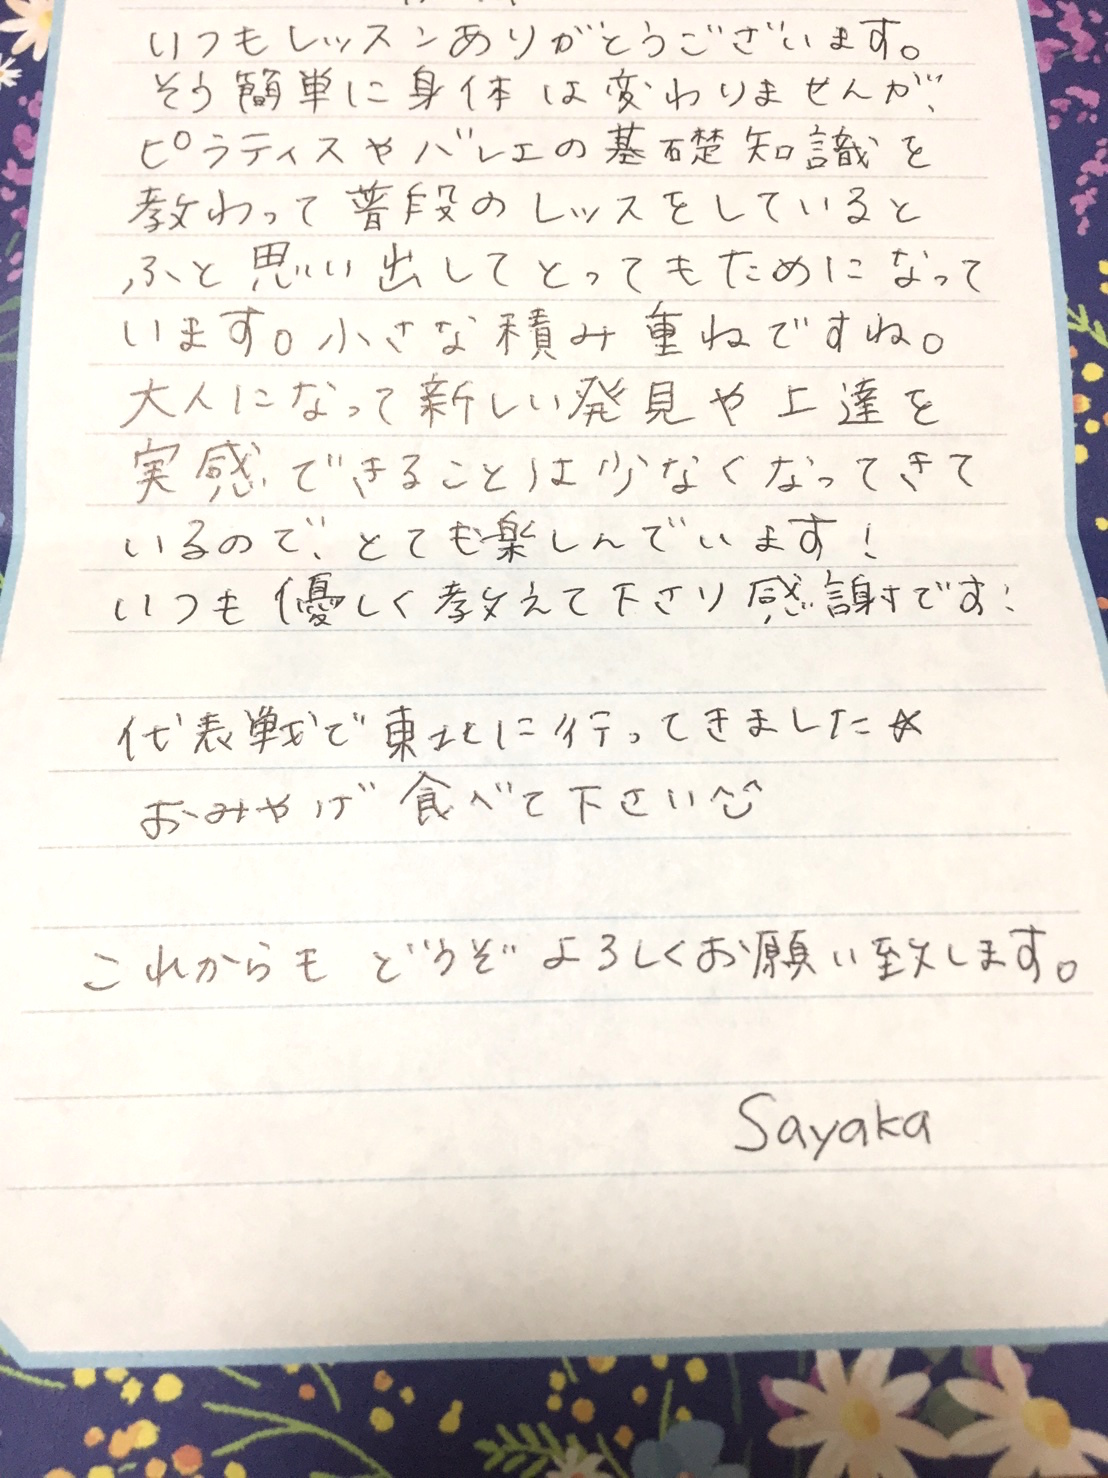 いつもレッスンありがとうございます。
そう簡単に身体は変わりませんが、
ピラティスやバレエの基礎知識を
教わって普段のレッスをしていると
ふと思い出してとってもためになって
います。小さな積み重ねですね。
大人になって新しい発見や上達を
実感できることは少なくなってきて
いるので、とても楽しんでいます!
いつも優しく教えて下さり感謝です!
代表戦で東北に行ってきました☆
おみやげ食べて下さい^^
これからもどうぞよろしくお願い致します。
Sayaka